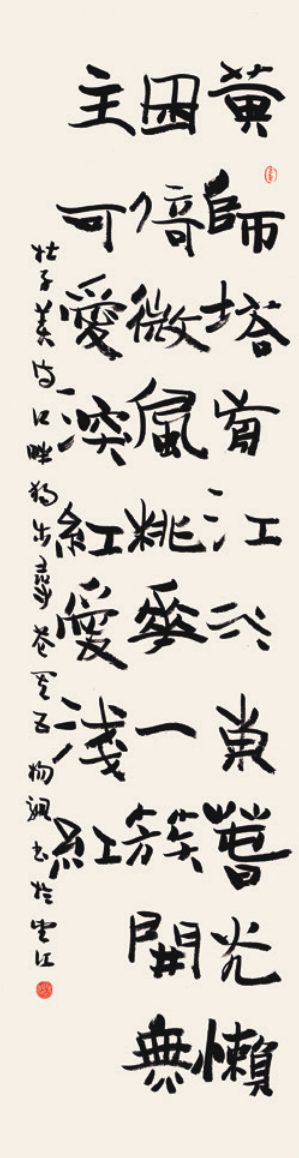 黄師塔前江水東春光懶
困倚微風桃華一簇開無
主可愛深紅愛淺紅
杜子美詩江畔獨步尋花其五書於雲江